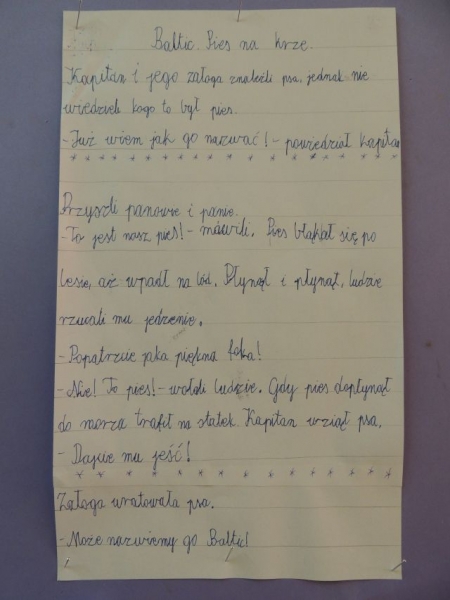 Baltic. Pies na krze.
Kapitan i jego załoga znaleźli psa, jednak nie
wiedzieli kogo to był pies.
- Już wiem jak go nazwać! - powiedział kapitan
* * * * * * * * * * * * * * * * * * *
Przyszli panowie i panie.
- To jest nasz pies! - mówili. Pies błąkał się po
lesie, aż wpadł na lód. Płynął i płynął, ludzie
rzucali mu jedzenie.
- Popatrzcie jaka piękna foka!
- Nie! To pies! - wołali ludzie. Gdy pies dopłynął
do morza trafił na statek. Kapitan wziął psa.
- Dajcie mu jeść!
* * * * * * * * * * * * * * * *
Załoga uratowała psa.
- Może nazwiemy go Baltic!